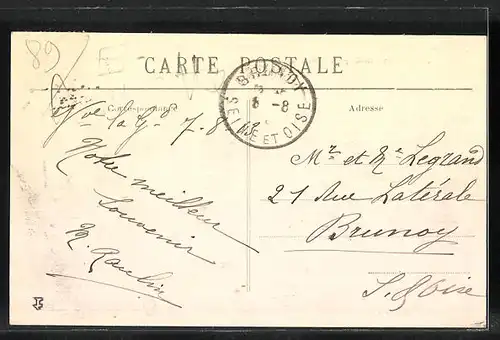 89
CARTE POSTALE
BRUNOY
SEINE ET OISE
8
Correspondance
Adresse
7-8
Notre meilleur
souvenir
M. Raulin
Mr et Me Legrand
21 Rue Latérale
Brunoy
S. & Oise